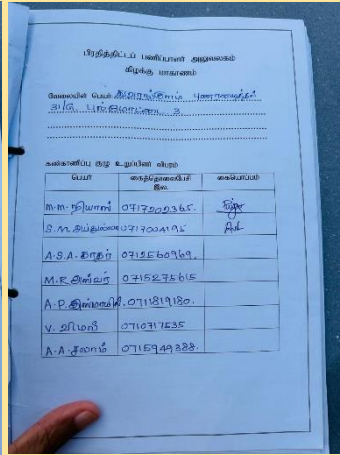 பிரதித்திட்டப் பணிப்பாளர் அலுவலகம்
கிழக்கு மாகாணம்
வேலையின் பெயர்
31/G புல்மோட்டை 3
கண்காணிப்பு குழு உறுப்பினர் விபரம்
பெயர் கைத்தொலைபேசி இல. கையொப்பம்
M.M. நியாஸ் 0717202365.
S.M. 0717004195
A.S.A. காதர் 0712560969.
M.R அன்வர் 0715275615
A.P. இஸ்மாயில். 0711819180.
V. விமல் 0710717535
A.A. சலாம் 0715949388.